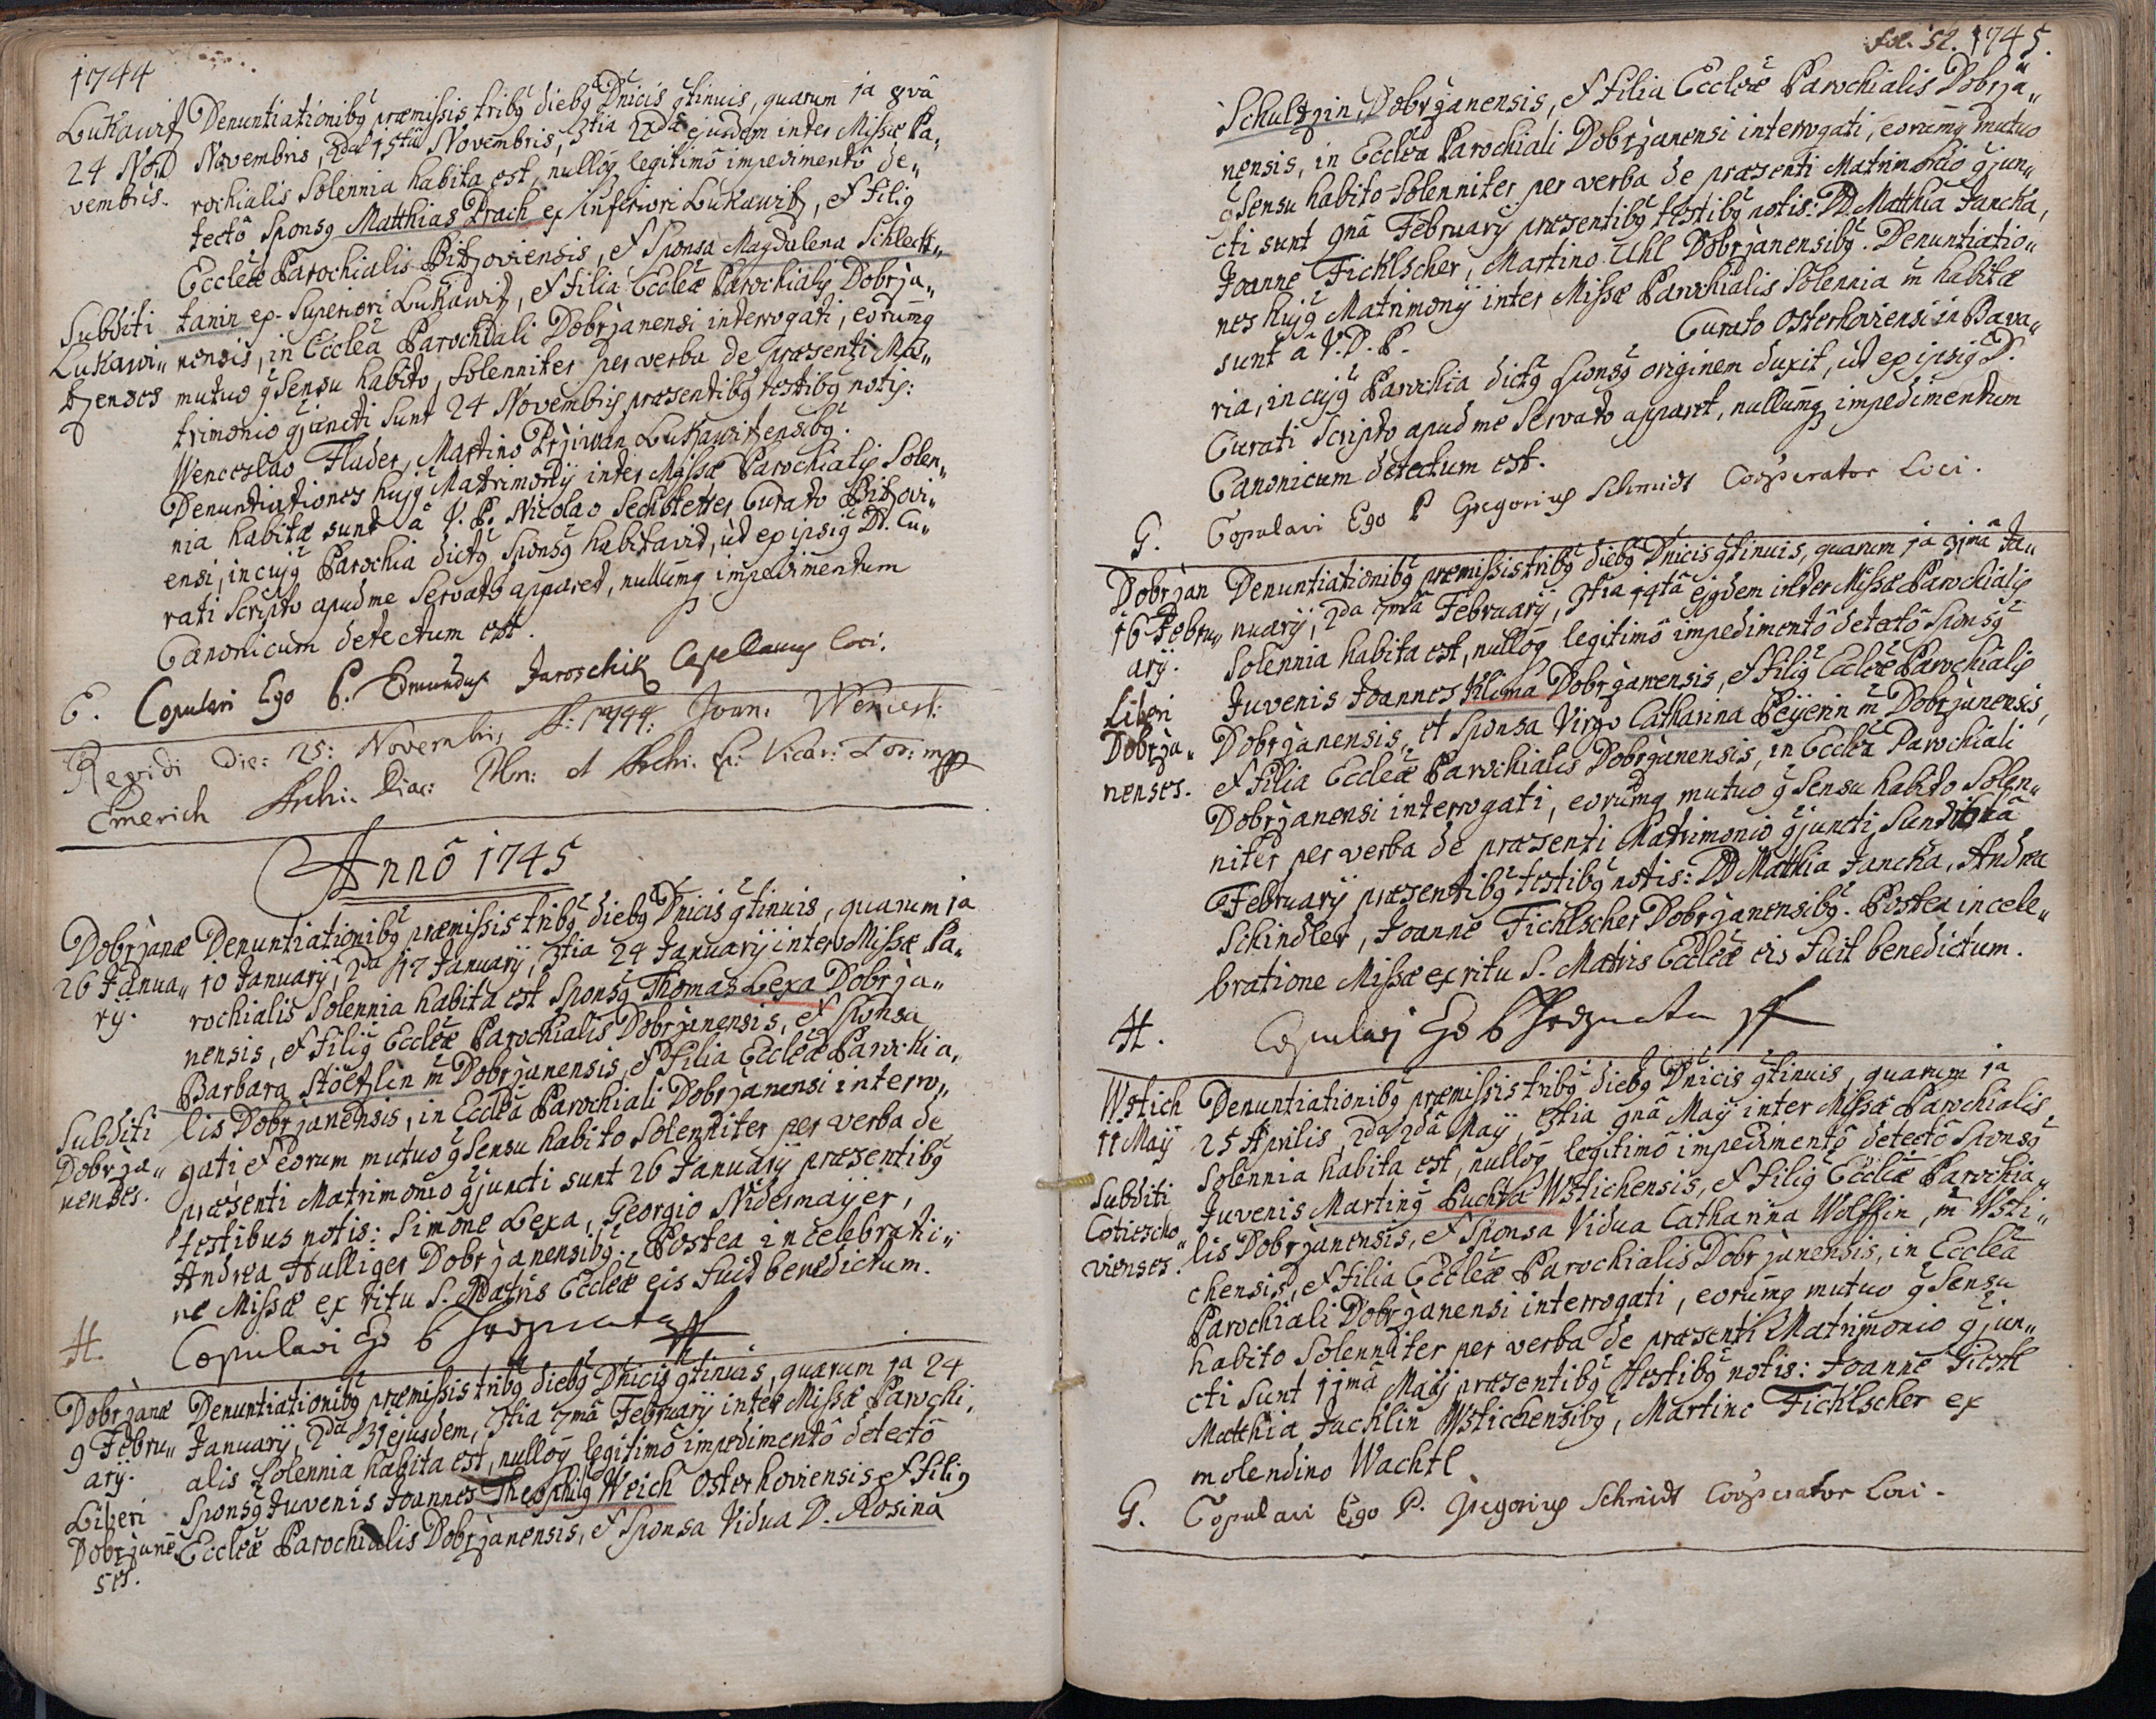 1744
Lukawitz Denuntiationibꝰ præmissis tribꝰ diebꝰ Dnicis ꝯtinuis, quarum 1a 8vâ
24 No„ Novembris, 2da 15ta Novembris, 3tia 22dâ ejusdem inter Missæ Pa„
vembris. rochialis Solennia habita est, nulloq legitimô impedimentô de„
tectô Sponsꝰ Matthias Prach ex inferiori Lukawitz, et Filiꝰ
Eccleæ Parochialis Bitzoviensis, et Sponsa Magdalena Schlech„
Subditi tanin ex Superiori Lukawitz, et Filia Eccleæ Parochialis Dobrza„
Lukawi„ nensis, in Ecclea Parochiali Dobrzanensi interrogati, eorumq
tzenses mutuo ꝯsensu habito, Solenniter per verba de præsenti Ma„
trimonio ꝯjuncti sunt 24 Novembris præsentibꝰ testibꝰ notis:
Wenceslao Fluder, Martino Przivan Lukawitzensibꝰ.
Denuntiationes hujꝰ Matrimonij inter Missæ Parochialis Solen„
nia habitæ sunt â V. P. Nicolao Sechstetter Curato Bitzovi„
ensi, in cujꝰ Parochia dictꝰ Sponsꝰ habitavit, ùt ex ipsiꝰ D. Cu„
rati Scripto apud me Servato apparet, nullumq impedimentum
Canonicum detectum est.
E. Copulavi Ego P. Edmundus Jaroschik Capellanus loci.
Revidi Die: 25: Novembri, A: 1744: Joan: Wencesl:
Emerich Archi. Diac: Pln: et Archi. Ep: Vicar: For: mpp
Annô 1745
Dobrzanæ Denuntiationibꝰ præmissis tribꝰ diebꝰ Dnicis ꝯtinuis, quarum 1a
26 Janua„ 10 Januarij, 2da 17 Januarij, 3tia 24 Januarij inter Missæ Pa„
rij. rochialis Solennia habita est Sponsꝰ Thomas Lexa Dobrza„
nensis, et Filiꝰ Eccleæ Parochialis Dobrzanensis, et Sponsa
Barbara Stöetzlin m̃ Dobrzanensis, et Filia Eccleæ Parochia„
Subditi lis Dobrzanensis, in Ecclea Parochiali Dobrzanensi interro„
Dobrza„ gati, et eorum mutuo ꝯsensu habito Solenniter per verba de
nenses. præsenti Matrimonio ꝯjuncti sunt 26 Januarij præsentibꝰ
testibus notis: Simone Lexa, Georgio Nidermaijer,
Andrea Hulliger Dobrzanensibꝰ. Postea in celebrati„
ne Missæ ex ritu S. Matris Eccleæ eis fuit benedictum.
H. Copulavi Ego P.
Dobrzanæ Denuntiationibꝰ præmissis tribꝰ diebꝰ Dnicis ꝯtinuis, quarum 1a 24
9 Febru„ Januarij, 2da 31 ejusdem, 3tia 7mâ Februarij inter Missæ Parochi„
arij. alis Solennia habita est, nulloq legitimô impedimentô detectô
Liberi Sponsꝰ Juvenis Joannes Theophilꝰ Weich Osterhoviensis et Filiꝰ
Dobrzanē„ Eccleæ Parochialis Dobrzanensis, et Sponsa Vidua D. Rosina
ses.
fol. 52. 1745.
Schultzin, Dobrzanensis, et Filia Eccleæ Parochialis Dobrza„
nensis, in Ecclea Parochiali Dobrzanensi interrogati, eorumq mutuo
ꝯsensu habito Solenniter per verba de præsenti Matrimonio ꝯjun„
cti sunt 9nâ Februarij præsentibꝰ testibꝰ notis: DD. Matthia Jancka,
Joanne Fichlscher, Martino Uhl Dobrzanensibꝰ. Denuntiatio„
nes hujꝰ Matrimonij inter Missæ Parochialis Solennia m̃ habitæ
sunt â V. D. P. Curato Osterhoviensi in Bava„
ria, in cujꝰ Parochia dictꝰ Sponsꝰ originem duxit, ùt ex ipsiꝰ D.
Curati Scripto apud me Servato apparet, nullumq impedimentum
Canonicum detectum est.
G. Copulavi Ego P Gregorius Schmidt Coöperator Loci.
Dobrzan Denuntiationibꝰ præmissis tribꝰ diebꝰ Dnicis ꝯtinuis, quarum 1a 31mâ Ja„
16 Febru„ nuarij, 2da 7mâ Februarij, 3tia 14tâ ejꝰdem inter Missæ Parochialis
arij. Solennia habita est, nulloq legitimô impedimentô detectô Sponsꝰ
Liberi Juvenis Joannes Klima Dobrzanensis, et Filiꝰ Eccleæ Parochialis
Dobrza„ Dobrzanensis, et Sponsa Virgo Catharina Peijerin m̃ Dobrzanensis,
nenses. et Filia Eccleæ Parochialis Dobrzanensis, in Ecclea Parochiali
Dobrzanensi interrogati, eorumq mutuo ꝯsensu habito Solen„
niter per verba de præsenti Matrimonio ꝯjuncti sunt
Februarij præsentibꝰ testibꝰ notis: DD Matthia Jancka, Andrea
Schindler, Joanne Fichlscher Dobrzanensibꝰ. Postea in cele„
bratione Missæ ex ritu S. Matris Eccleæ eis fuit benedictum.
H. Copulavi Ego P
Wstich Denuntiationibꝰ præmissis tribꝰ diebꝰ Dnicis ꝯtinuis, quarum 1a
11 Maij 25 Aprilis, 2da 2dâ Maij, 3tia 9nâ Maij inter Missæ Parochialis
Solennia habita est, nulloq legitimô impedimentô detectô Sponsꝰ
Subditi Juvenis Martinꝰ Puchta Wstichensis, et Filiꝰ Eccleæ Parochia„
Cotiescho„ lis Dobrzanensis, et Sponsa Vidua Catharina Wolffin, m̃ Wsti„
vienses. chensis, et Filia Eccleæ Parochialis Dobrzanensis, in Ecclea
Parochiali Dobrzanensi interrogati, eorumq mutuo ꝯsensu
habito Solenniter per verba de præsenti Matrimonio ꝯjun„
cti sunt 11mâ Maij præsentibꝰ testibꝰ notis: Joanne
Matthia Juchlin Wstichensibꝰ, Martino Fichlscher ex
molendino Wachtl
G. Copulavi Ego P. Gregorius Schmidt Coöperator Loci.